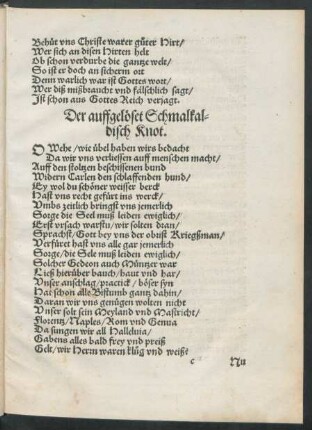 Behüt vns Christe warer güter Hirt/
Wer sich an disen Hirten helt
Ob schon verdurbe die gantze welt/
So ist er doch an sicherm ort
Denn warlich war ist Gottes wort/
Wer diß mißbraucht vnd fälschlich sagt/
Ist schon aus Gottes Reich verjagt.
Der auffgelöset Schmalkal-
disch Knot.
O Wehe/wie übel haben wirs bedacht
Da wir vns verliessen auff menschen macht/
Auff den stoltzen beschissenen bund
Widern Carlen den schlaffenden hund/
Ey wol du schöner weisser berck
Hast vns recht gefürt ins werck/
Vmbs zeitlich bringst vns jemerlich
Sorge die Seel muß leiden ewiglich/
Erst vrsach warstu/wir solten dran/
Sprachst/Gott bey vns der obrist Kriegßman/
Verfüret hast vns alle gar jemerlich
Sorge/die Sele muß leiden ewiglich/
Solcher Gedeon auch Müntzer war
Ließ hierüber bauch/haut vnd har/
Vnser anschlag/practick/böser syn
Hat schon alle Bistumb gantz dahin/
Daran wir vns genügen wolten nicht
Vnser solt sein Meyland vnd Mastricht/
Florentz/Naples/Rom vnd Genua
Da sungen wir all Halleluia/
Gabens alles bald frey vnd preiß
Gelt/wir Herrn waren klüg vnd weiß?
c Nu